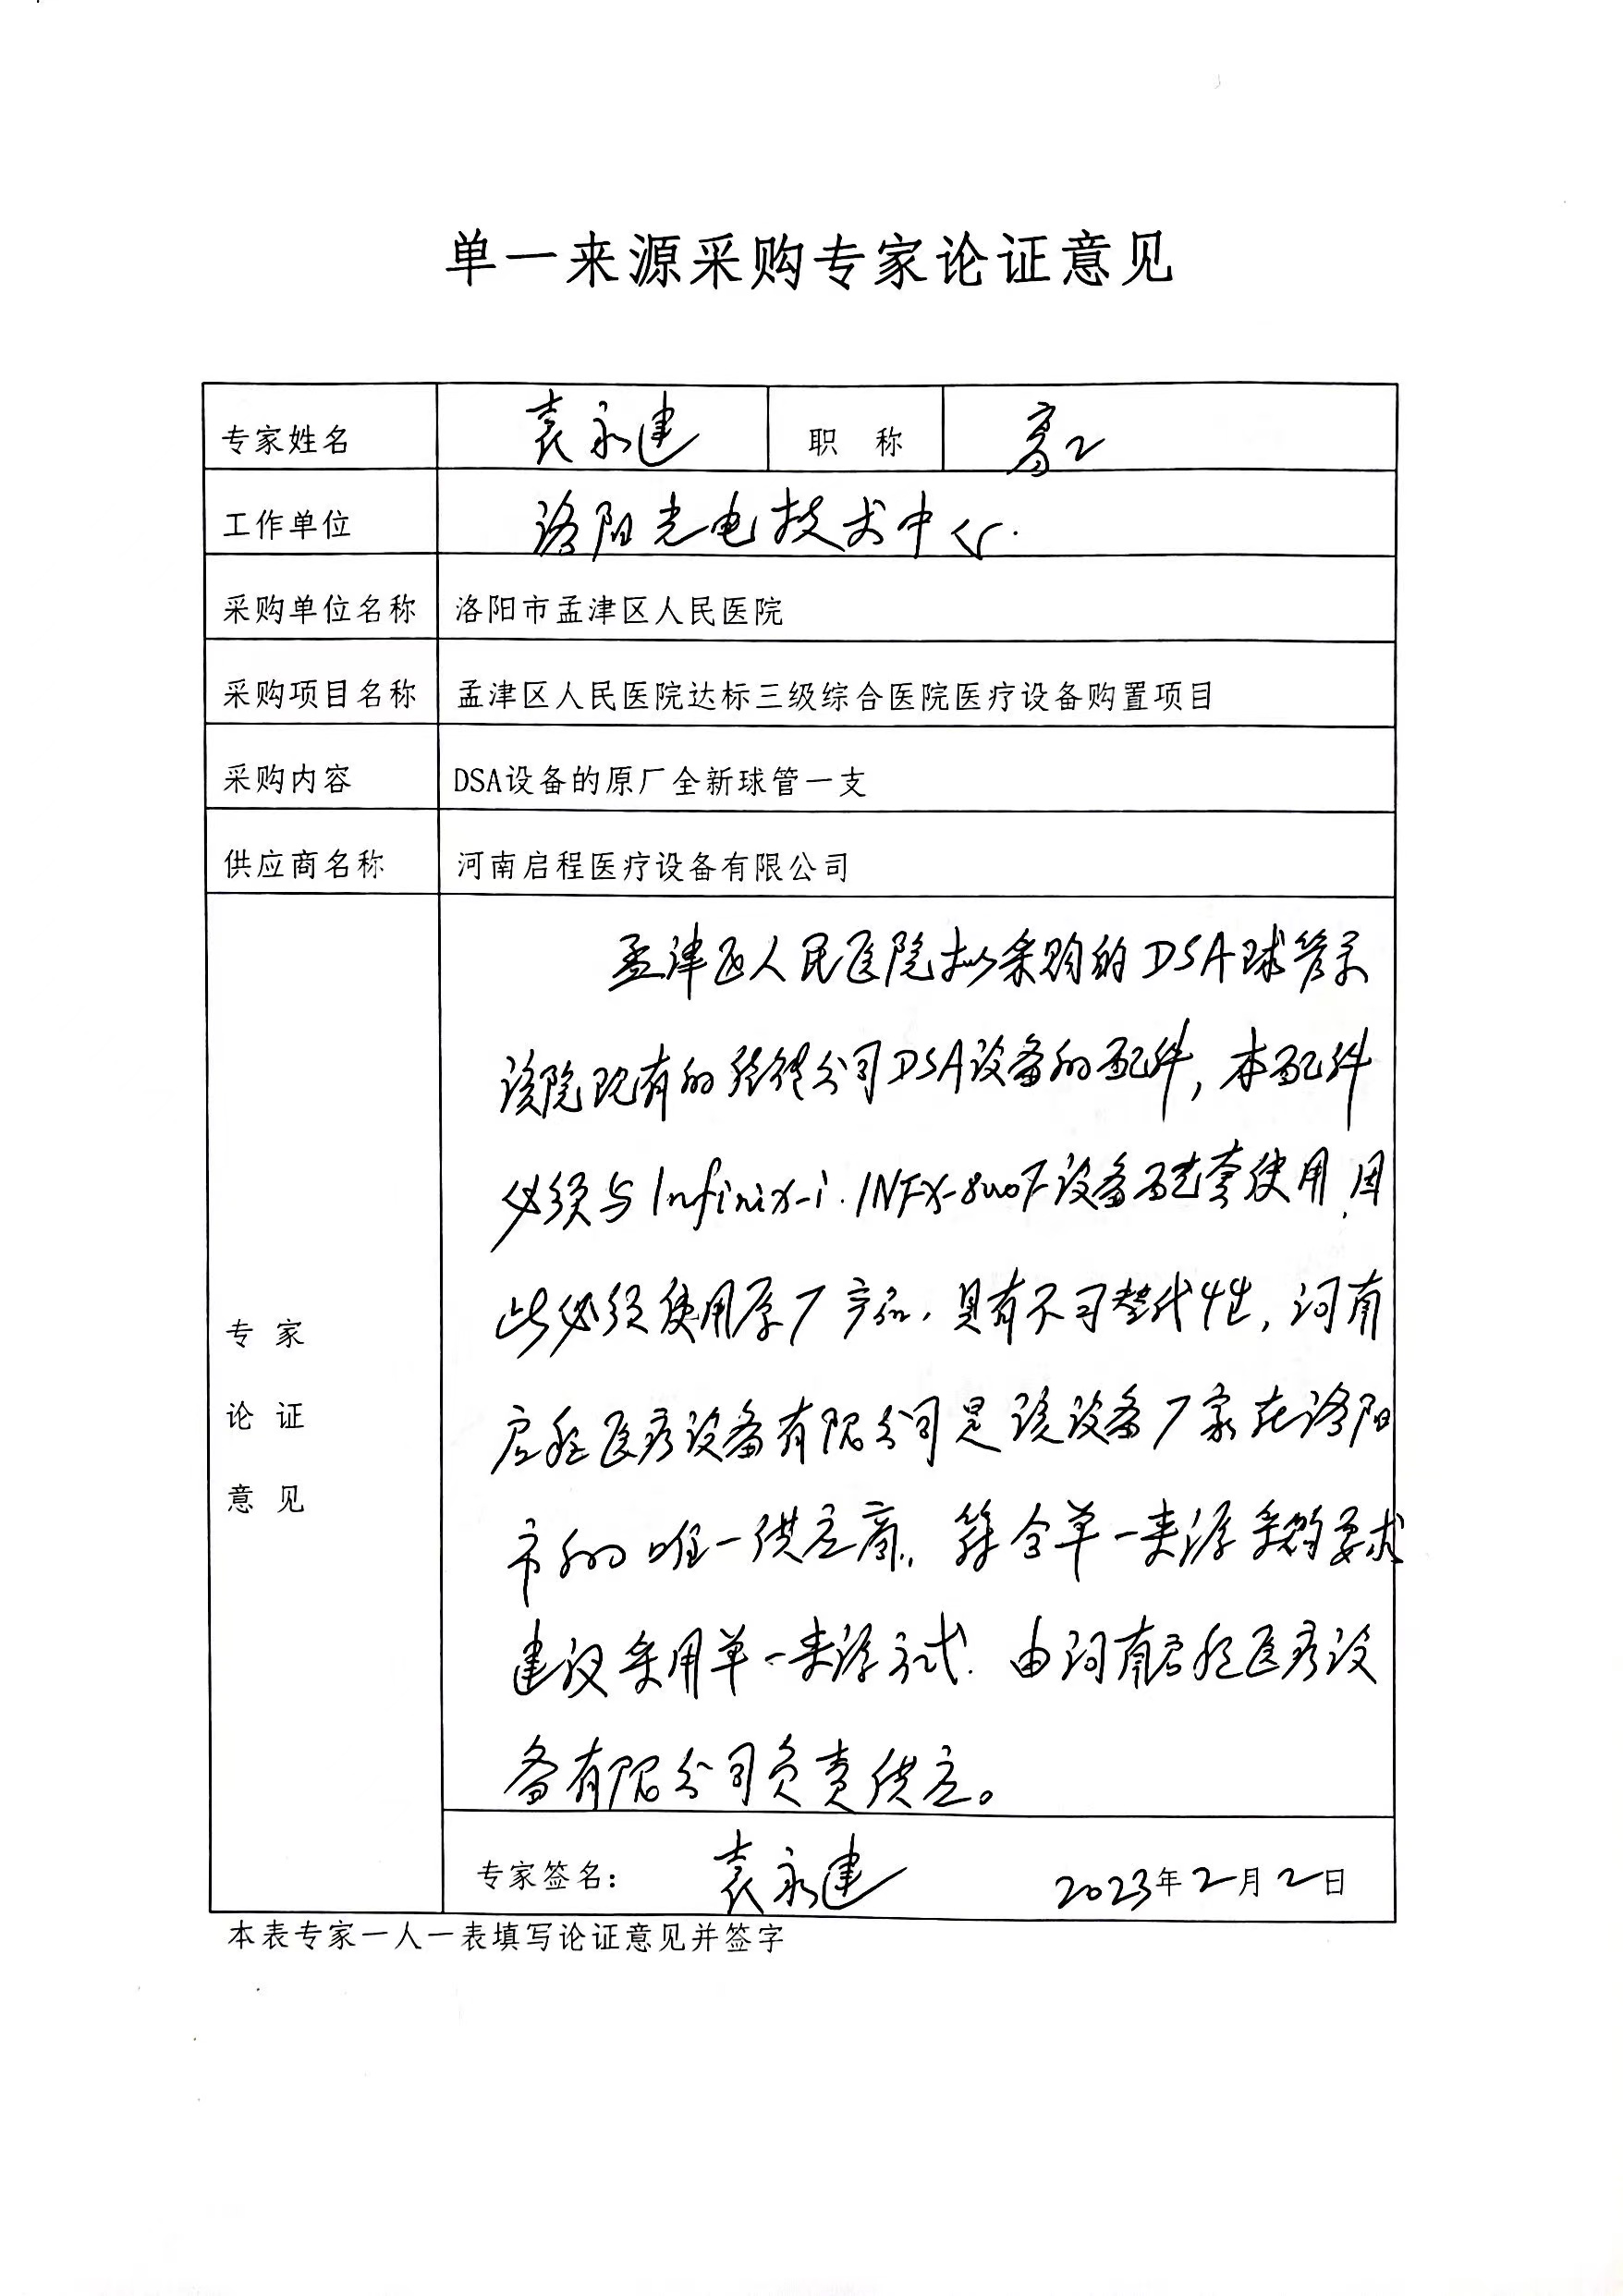 单一来源采购专家论证意见
专家姓名 袁永建 职 称 高工
工作单位 洛阳光电技术中心.
采购单位名称 洛阳市孟津区人民医院
采购项目名称 孟津区人民医院达标三级综合医院医疗设备购置项目
采购内容 DSA设备的原厂全新球管一支
供应商名称 河南启程医疗设备有限公司
专家
论证
意见
孟津区人民医院拟采购的DSA球管是
该院现有的 公司DSA设备的配件，本配件
必须与Infinix-i.INFX-8000F设备配套使用，因
此必须使用原厂产品，具有不可替代性，河南
启程医疗设备有限公司是该设备厂家在洛阳
市的唯一供应商，符合单一来源采购要求
建议采用单一来源方式.由河南启程医疗设
备有限公司负责供应。
专家签名： 袁永建 2023年2月2日
本表专家一人一表填写论证意见并签字